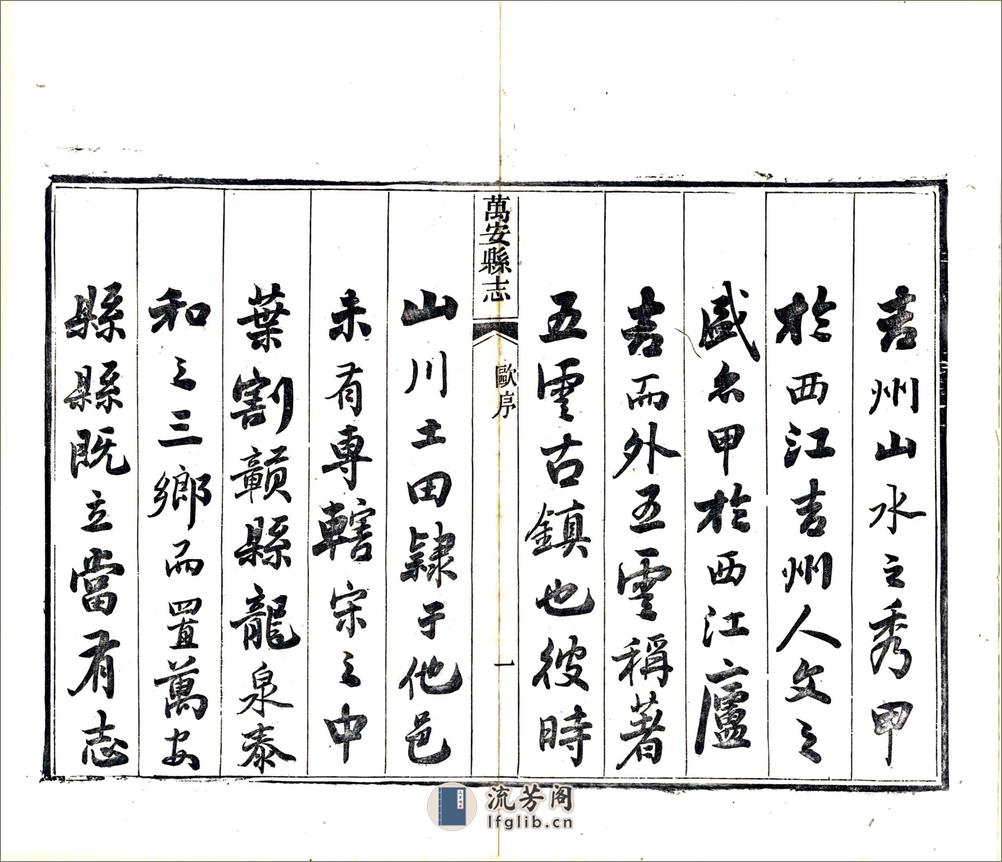 吉州山水之秀甲
於西江吉州人文之
盛亦甲於西江廬
吉而外五雲稱著
五雲古鎮也彼時
萬安縣志
歐序
一
山川土田隸于他邑
未有專轄宋之中
葉割贛縣龍泉泰
和之三鄉而置萬安
縣縣既立當有志
流芳阁
lfglib.cn